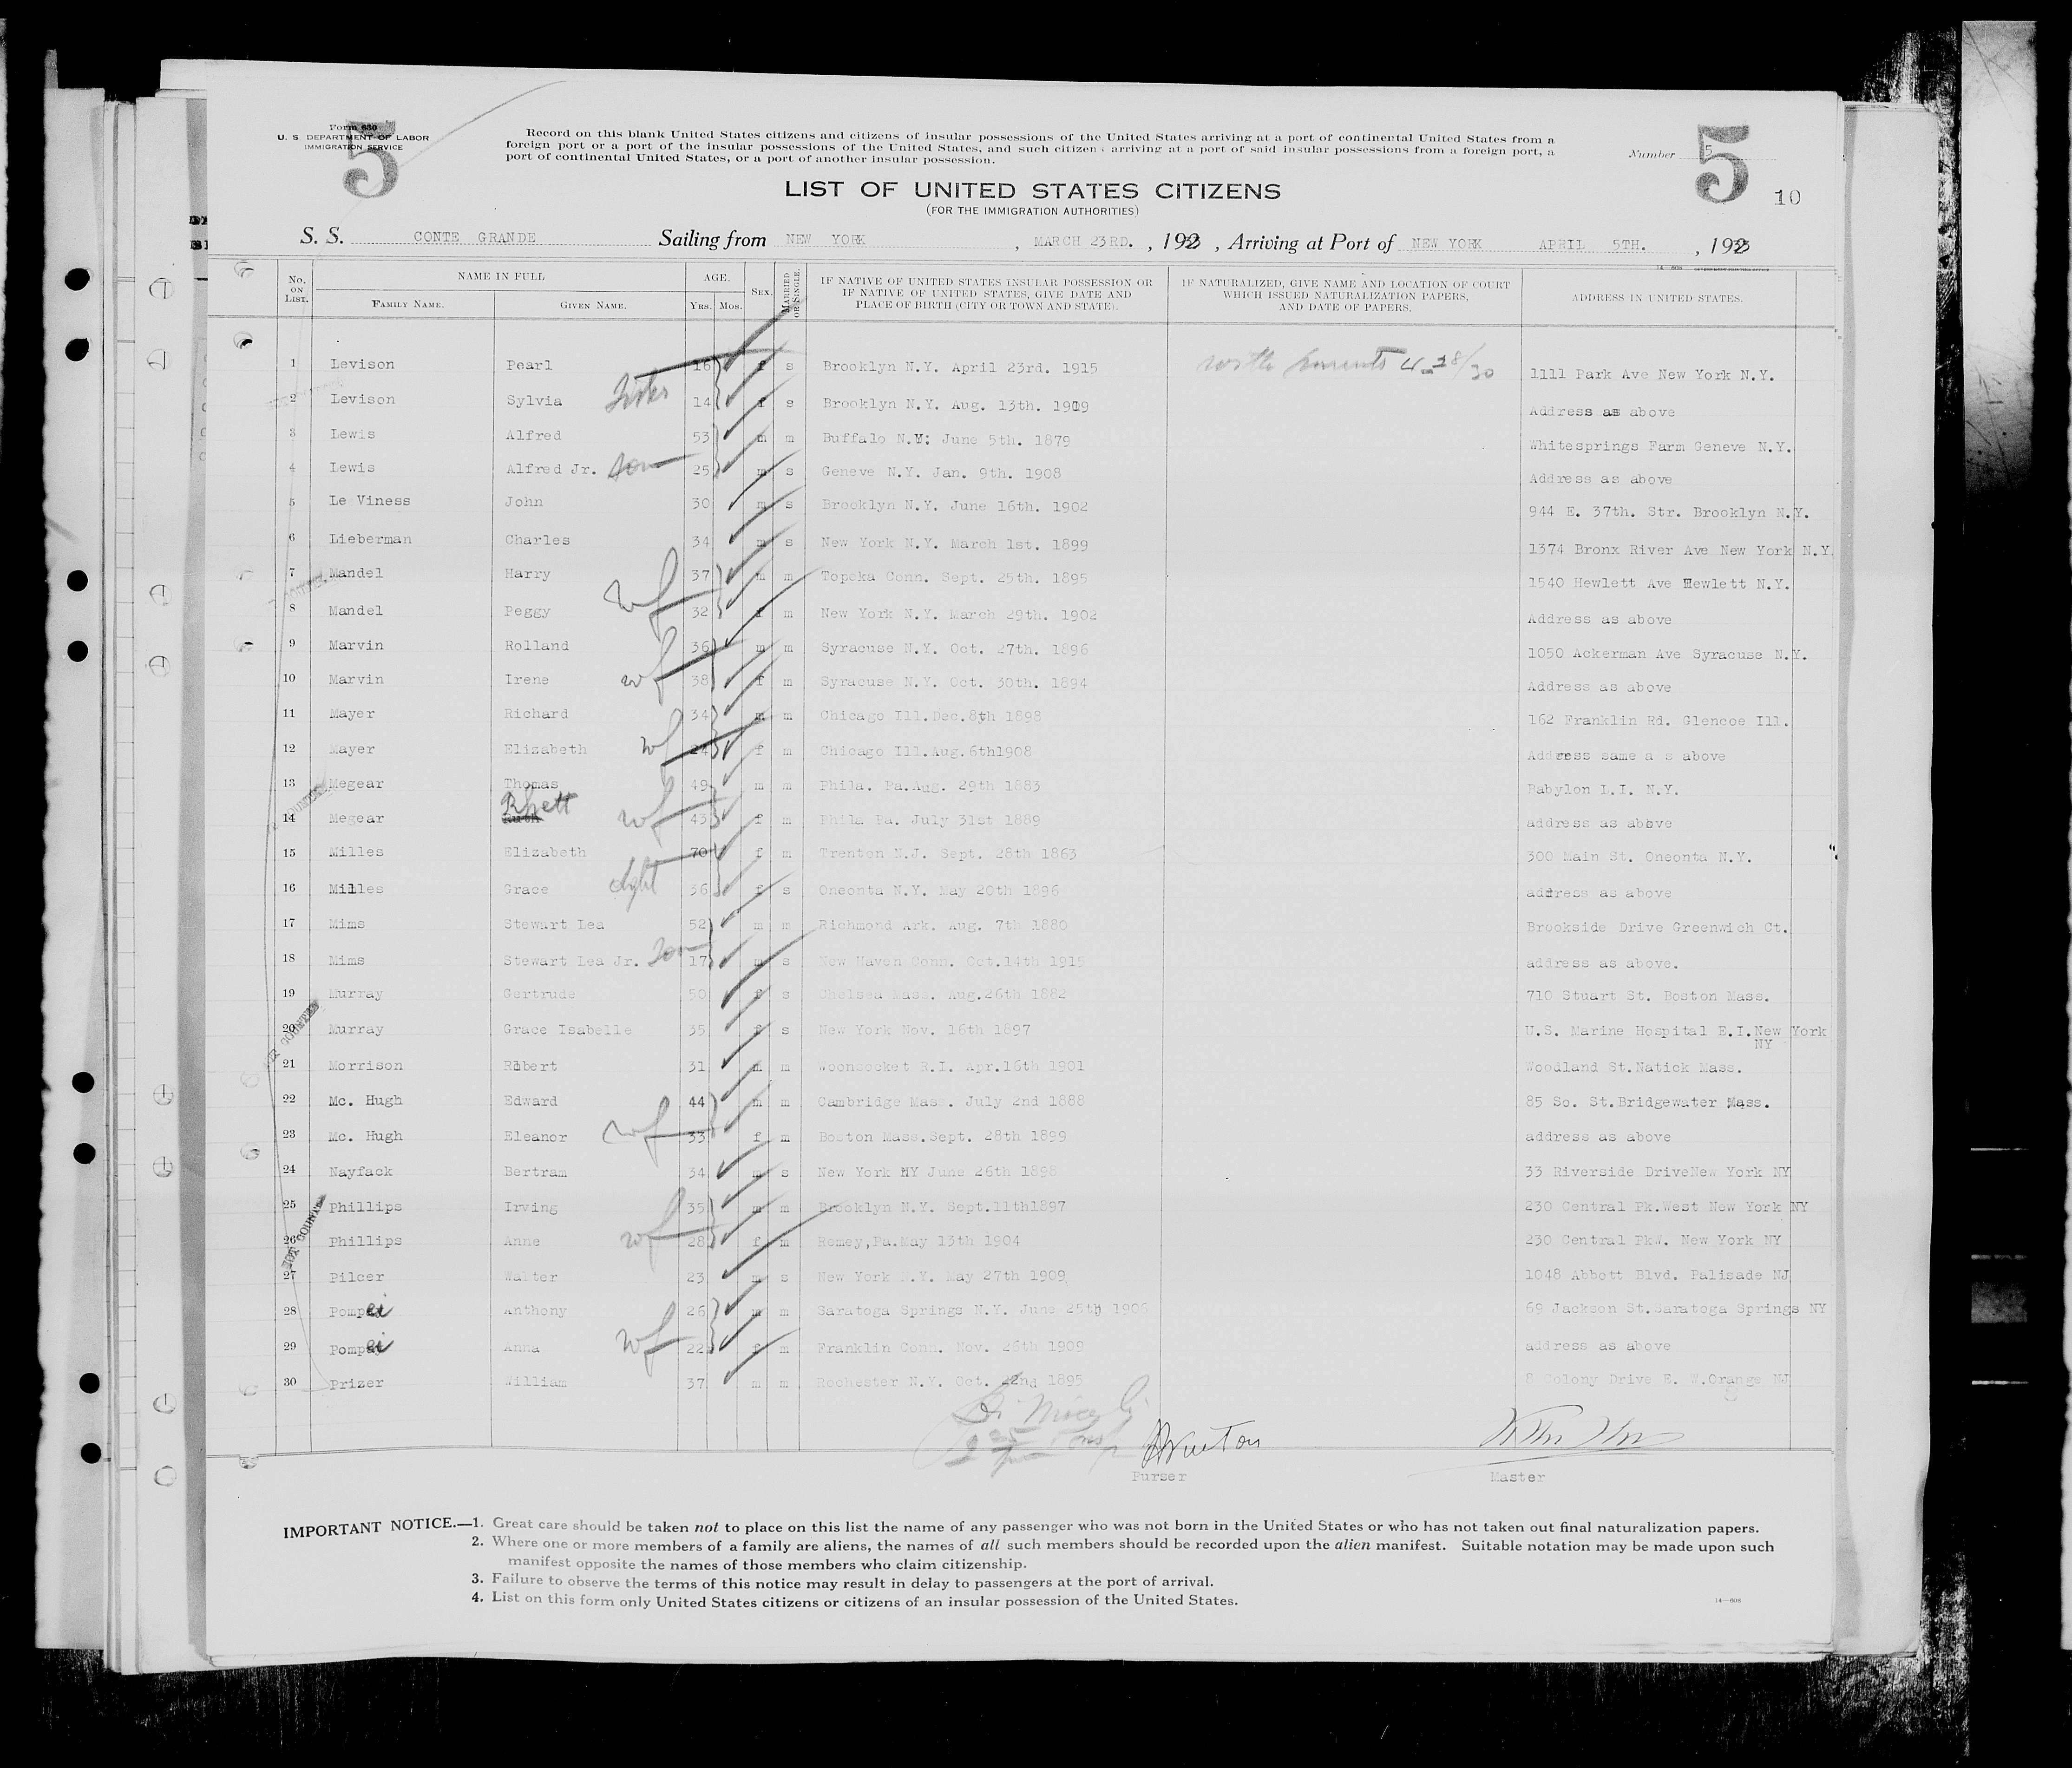 5
Form 630
U. S. DEPARTMENT OF LABOR
IMMIGRATION SERVICE
Record on this blank United States citizens and citizens of insular possessions of the United States arriving at a port of continental United States from a
foreign port or a port of the insular possessions of the United States, and such citizens arriving at a port of said insular possessions from a foreign port, a
port of continental United States, or a port of another insular possession.
Number 5
5
10
LIST OF UNITED STATES CITIZENS
(FOR THE IMMIGRATION AUTHORITIES)
S. S. CONTE GRANDE Sailing from NEW YORK, MARCH 23RD., 1933, Arriving at Port of NEW YORK APRIL 5TH., 1933
No. ON LIST. NAME IN FULL AGE. SEX. MARRIED OR SINGLE. IF NATIVE OF UNITED STATES INSULAR POSSESSION OR IF NATIVE OF UNITED STATES, GIVE DATE AND PLACE OF BIRTH (CITY OR TOWN AND STATE). IF NATURALIZED, GIVE NAME AND LOCATION OF COURT WHICH ISSUED NATURALIZATION PAPERS, AND DATE OF PAPERS. ADDRESS IN UNITED STATES.
FAMILY NAME. GIVEN NAME. YRS. MOS.
1 Levison Pearl 16 f s Brooklyn N.Y. April 23rd. 1915 with parents 1111 Park Ave New York N.Y.
2 Levison Sylvia sister 14 f s Brooklyn N.Y. Aug. 13th. 1919 Address as above
3 Lewis Alfred 53 m m Buffalo N.Y. June 5th. 1879 Whitesprings Farm Geneve N.Y.
4 Lewis Alfred Jr. son 25 m s Geneve N.Y. Jan. 9th. 1908 Address as above
5 Le Viness John 30 m s Brooklyn N.Y. June 16th. 1902 944 E. 37th. Str. Brooklyn N.Y.
6 Lieberman Charles 34 m s New York N.Y. March 1st. 1899 1374 Bronx River Ave New York N.Y.
7 Mandel Harry 37 m m Topeka Conn. Sept. 25th. 1895 1540 Hewlett Ave Hewlett N.Y.
8 Mandel Peggy wf 32 f m New York N.Y. March 29th. 1902 Address as above
9 Marvin Rolland 36 m m Syracuse N.Y. Oct. 27th. 1896 1050 Ackerman Ave Syracuse N.Y.
10 Marvin Irene wf 38 f m Syracuse N.Y. Oct. 30th. 1894 Address as above
11 Mayer Richard 34 m m Chicago Ill.Dec.8th 1898 162 Franklin Rd. Glencoe Ill.
12 Mayer Elizabeth wf 24 f m Chicago Ill.Aug.6th1908 Address same a s above
13 Megear Thomas 49 m m Phila. Pa.Aug. 29th 1883 Babylon L.I. N.Y.
14 Megear Ruth Rhett wf 43 f m Phila Pa. July 31st 1889 address as above
15 Milles Elizabeth 70 f m Trenton N.J. Sept. 28th 1863 300 Main St. Oneonta N.Y.
16 Milles Grace dght 36 f s Oneonta N.Y. May 20th 1896 address as above
17 Mims Stewart Lea 52 m m Richmond Ark. Aug. 7th 1880 Brookside Drive Greenwich Ct.
18 Mims Stewart Lea Jr. son 17 m s New Haven Conn. Oct.14th 1915 address as above.
19 Murray Gertrude 50 f s Chelsea Mass. Aug.26th 1882 710 Stuart St. Boston Mass.
20 Murray Grace Isabelle 35 f s New York Nov. 16th 1897 U.S. Marine Hospital E.I.New York NY
21 Morrison Robert 31 m m Woonsocket R.I. Apr.16th 1901 Woodland St.Natick Mass.
22 Mc. Hugh Edward 44 m m Cambridge Mass. July 2nd 1888 85 So. St.Bridgewater Mass.
23 Mc. Hugh Eleanor wf 33 f m Boston Mass.Sept. 28th 1899 address as above
24 Nayfack Bertram 34 m s New York NY June 26th 1898 33 Riverside DriveNew York NY
25 Phillips Irving 35 m m Brooklyn N.Y. Sept.11th1897 230 Central Pk.West New York NY
26 Phillips Anne wf 28 f m Remey,Pa.May 13th 1904 230 Central PkW. New York NY
27 Pilcer Walter 23 m s New York N.Y. May 27th 1909 1048 Abbott Blvd. Palisade NJ
28 Pompei Anthony 26 m m Saratoga Springs N.Y. June 25th 1906 69 Jackson St.Saratoga Springs NY
29 Pompei Anna wf 22 f m Franklin Conn. Nov. 26th 1909 address as above
30 Prizer William 37 m m Rochester N.Y. Oct. 22nd 1895 8 Colony Drive E. W.Orange NJ
NOT COUNTED
Purser
Master
IMPORTANT NOTICE.—1. Great care should be taken not to place on this list the name of any passenger who was not born in the United States or who has not taken out final naturalization papers.
2. Where one or more members of a family are aliens, the names of all such members should be recorded upon the alien manifest. Suitable notation may be made upon such
manifest opposite the names of those members who claim citizenship.
3. Failure to observe the terms of this notice may result in delay to passengers at the port of arrival.
4. List on this form only United States citizens or citizens of an insular possession of the United States.
14—608